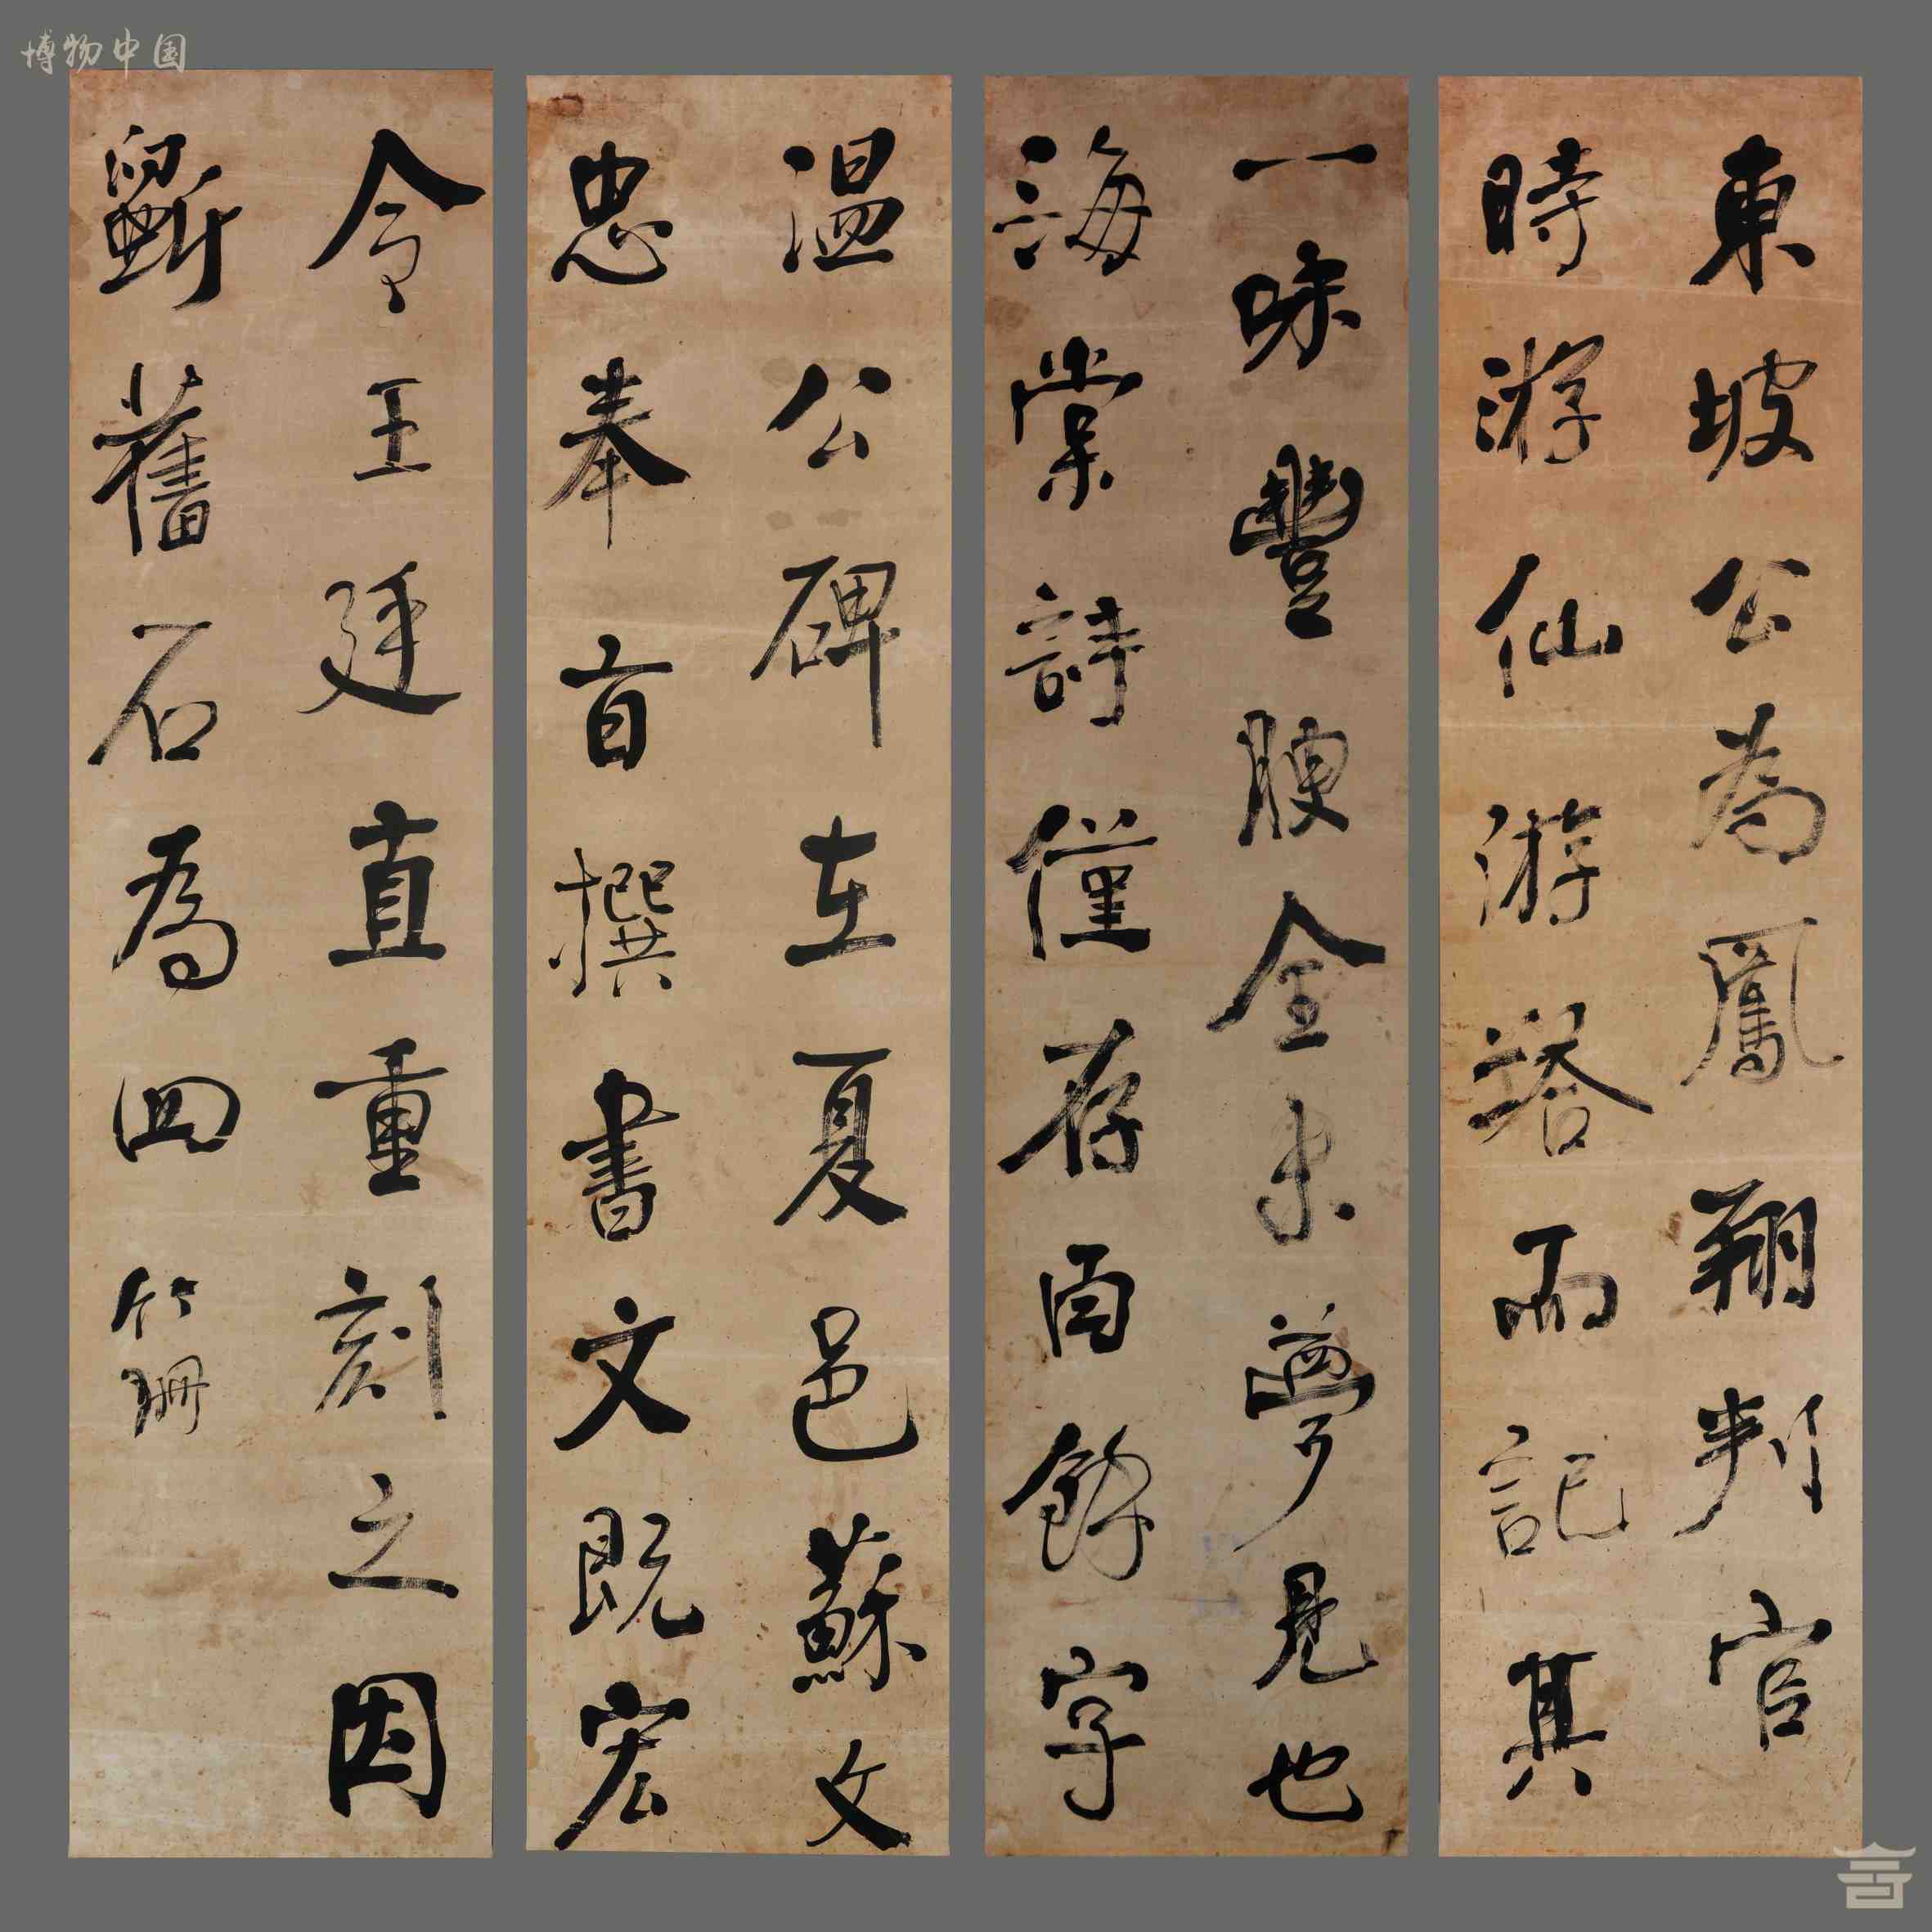 博物中国
東坡公為鳳翔判官
時游仙游塔而記其
一味豐腴全未夢見也
海棠詩僅存百餘字
溫公碑在夏邑蘇文
忠奉旨撰書文既宏
令王廷直重刻之因
斷舊石為四